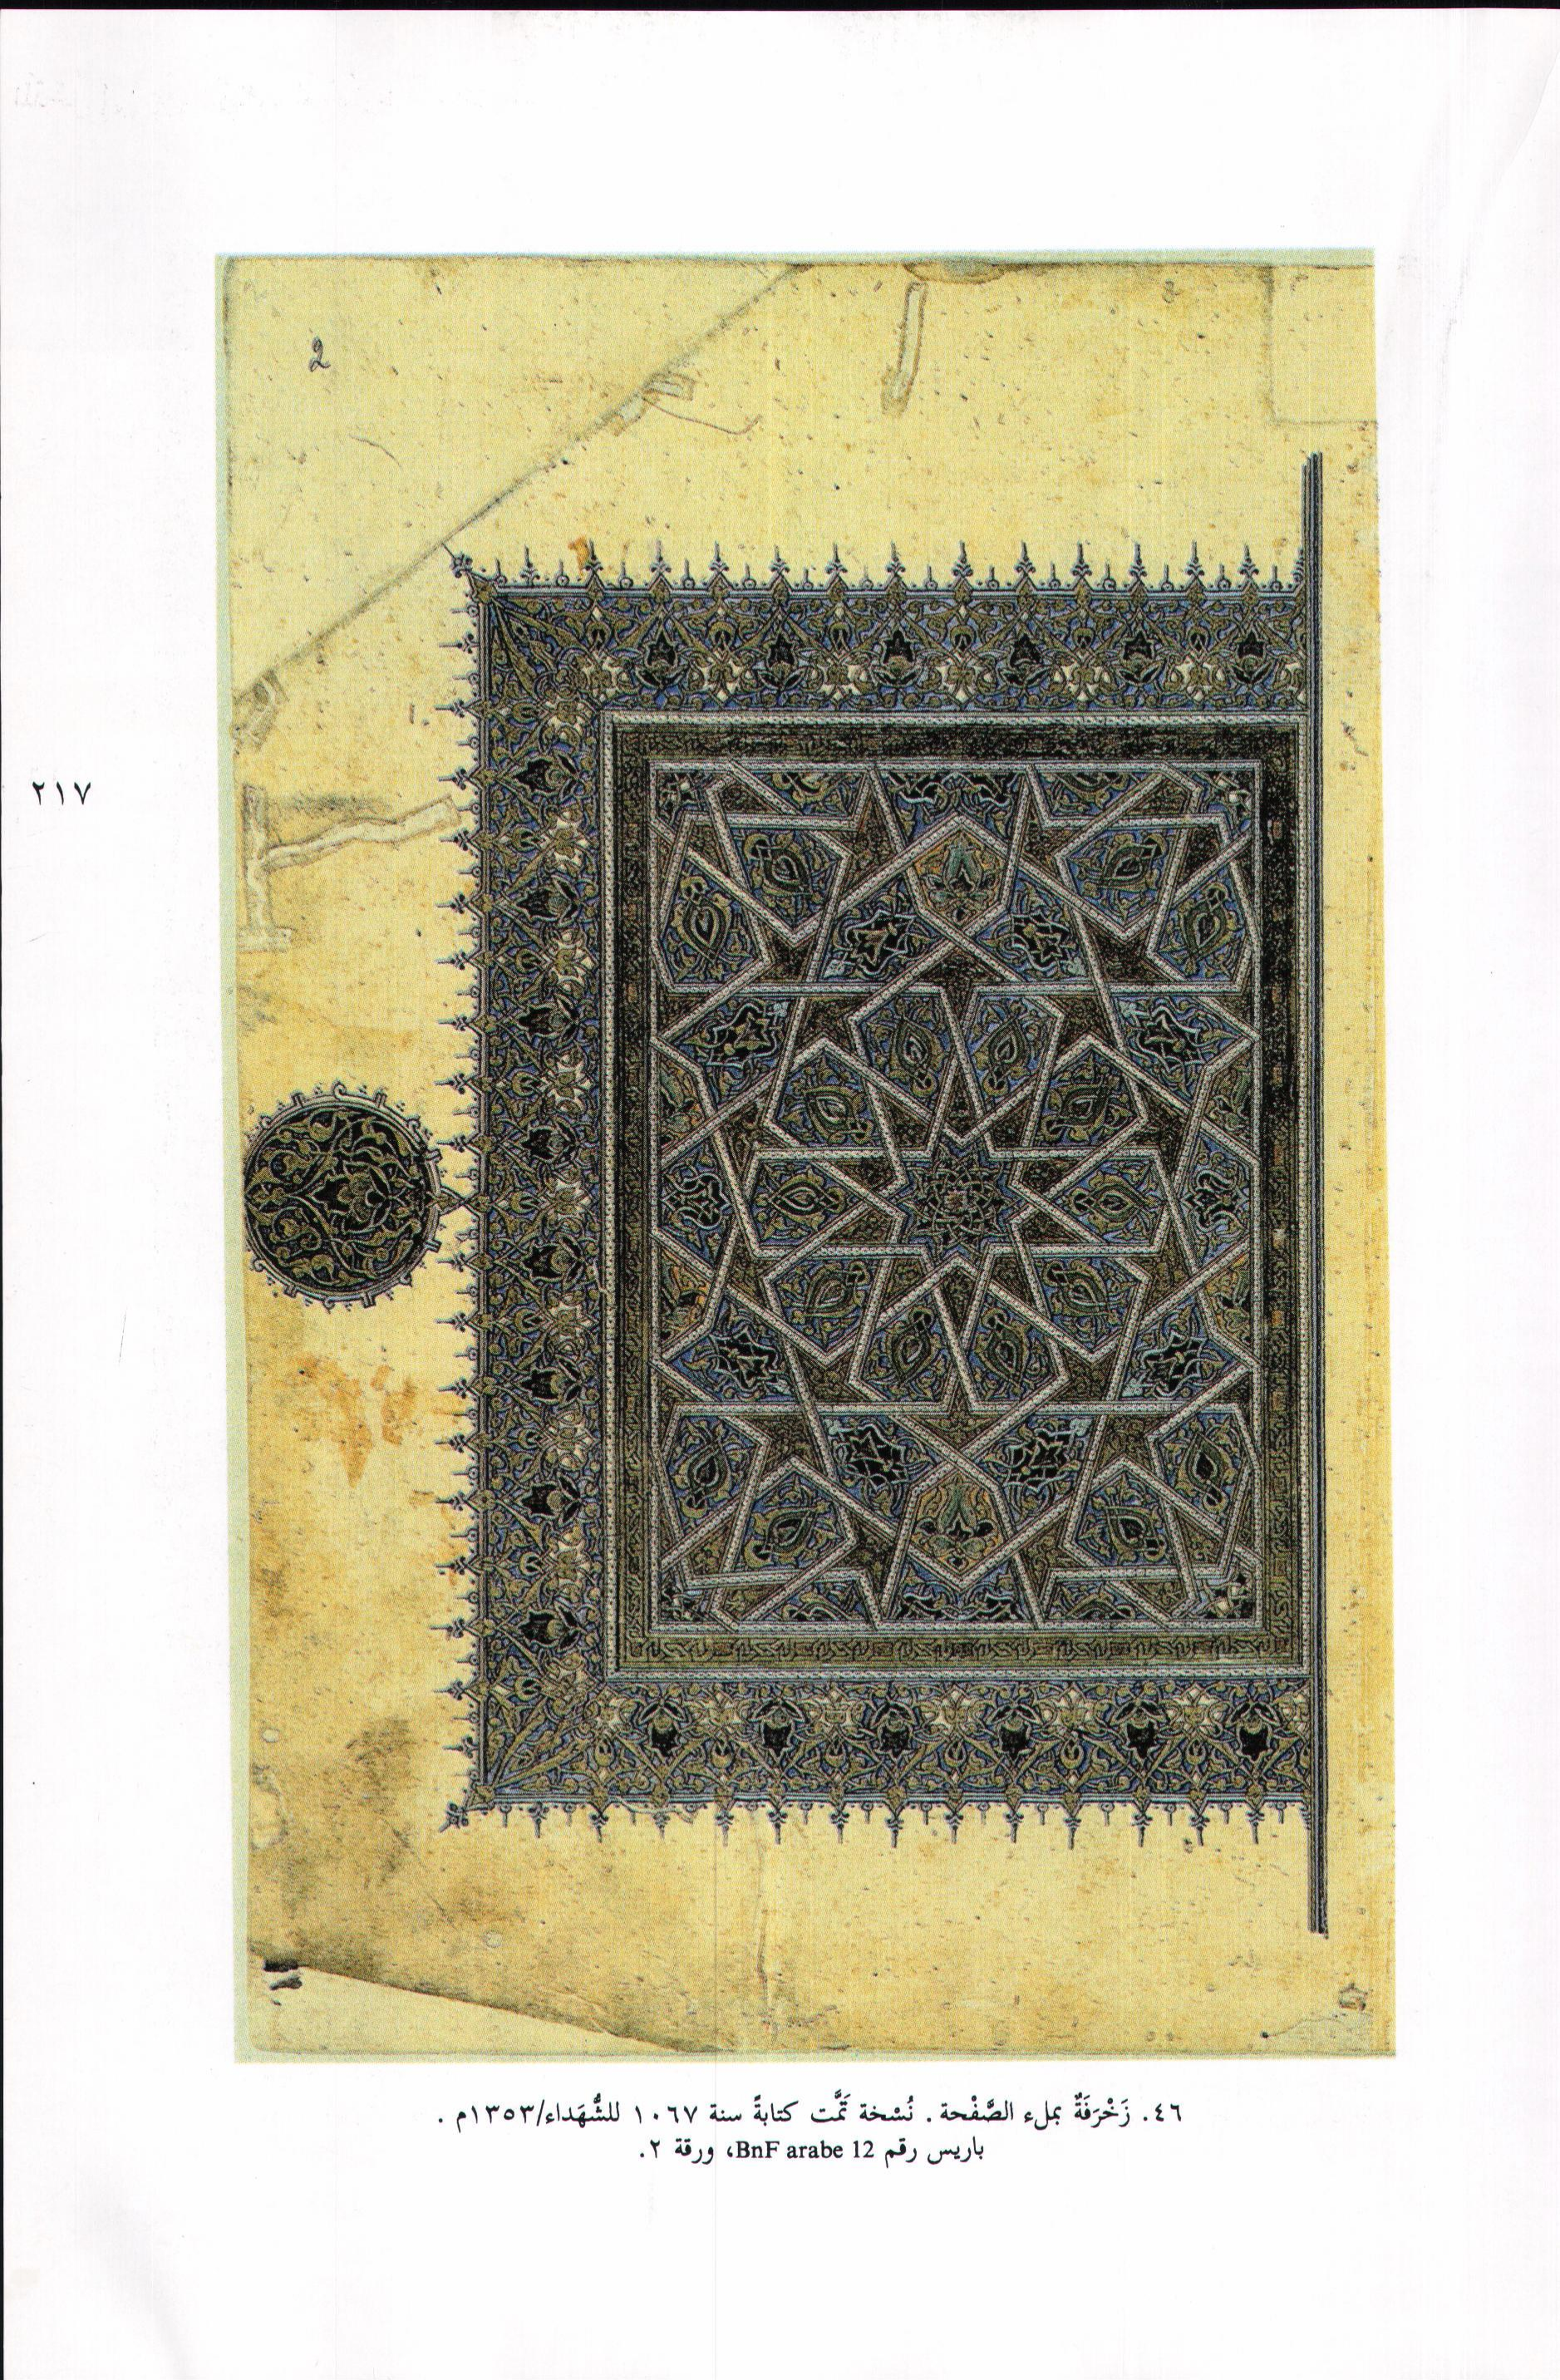 2
٢١٧
٤٦. زَخْرَفَةٌ بملء الصَّفْحة. نُسْخة تَمَّت كتابةً سنة ١٠٦٧ للشُّهَداء/١٣٥٣م.
باريس رقم BnF arabe 12، ورقة ٢.